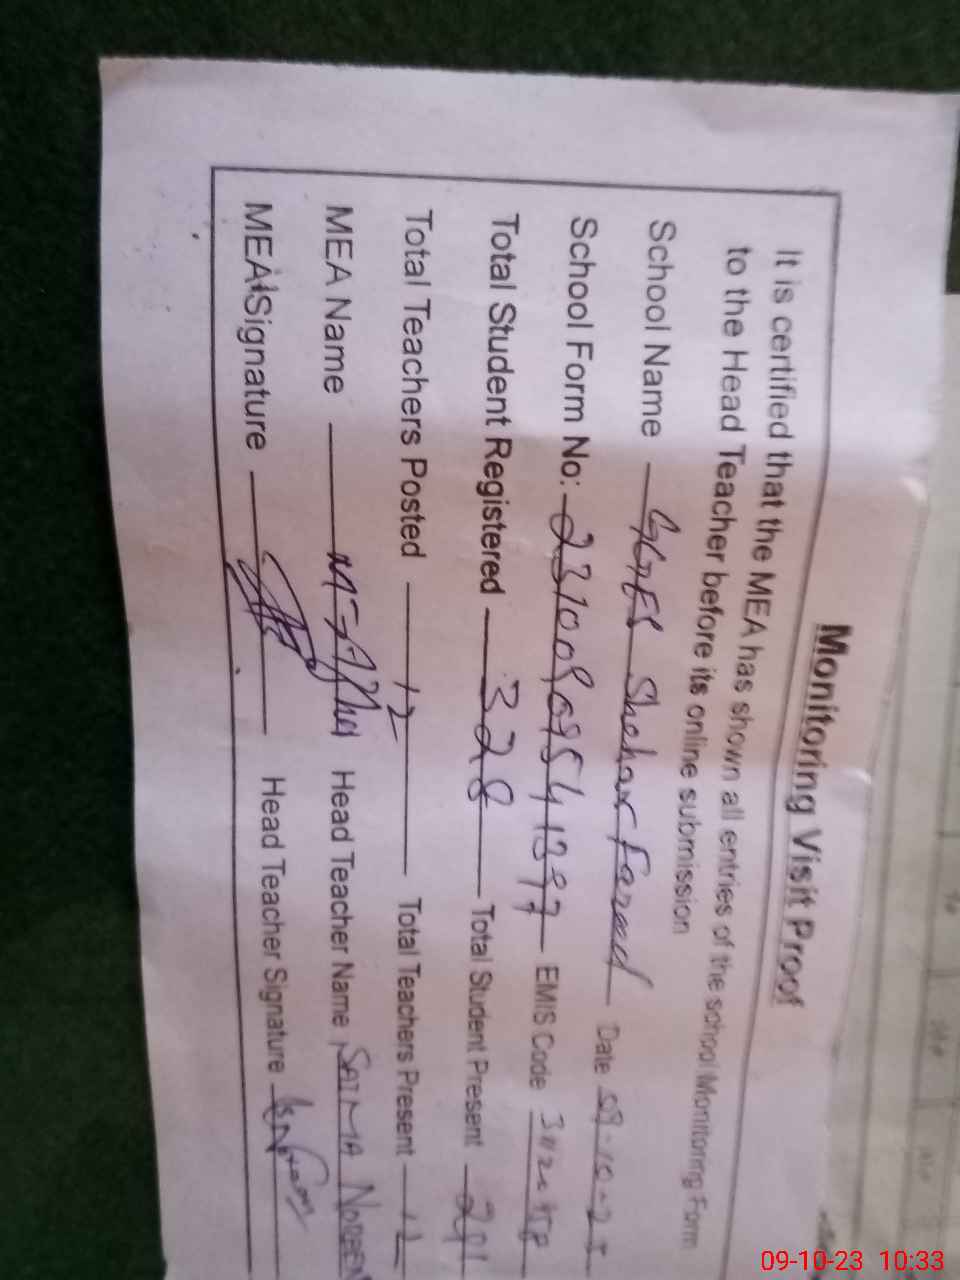 Monitoring Visit Proof
It is certified that the MEA has shown all entries of the school Monitoring Form
to the Head Teacher before its online submission
School Name Shehar Fareed Date 09-10-2
School Form No: EMIS Code
Total Student Registered 328 Total Student Present 291
Total Teachers Posted 12 Total Teachers Present 12
MEA Name Head Teacher Name SAIMA NOREEN
MEA Signature Head Teacher Signature
09-10-23 10:33